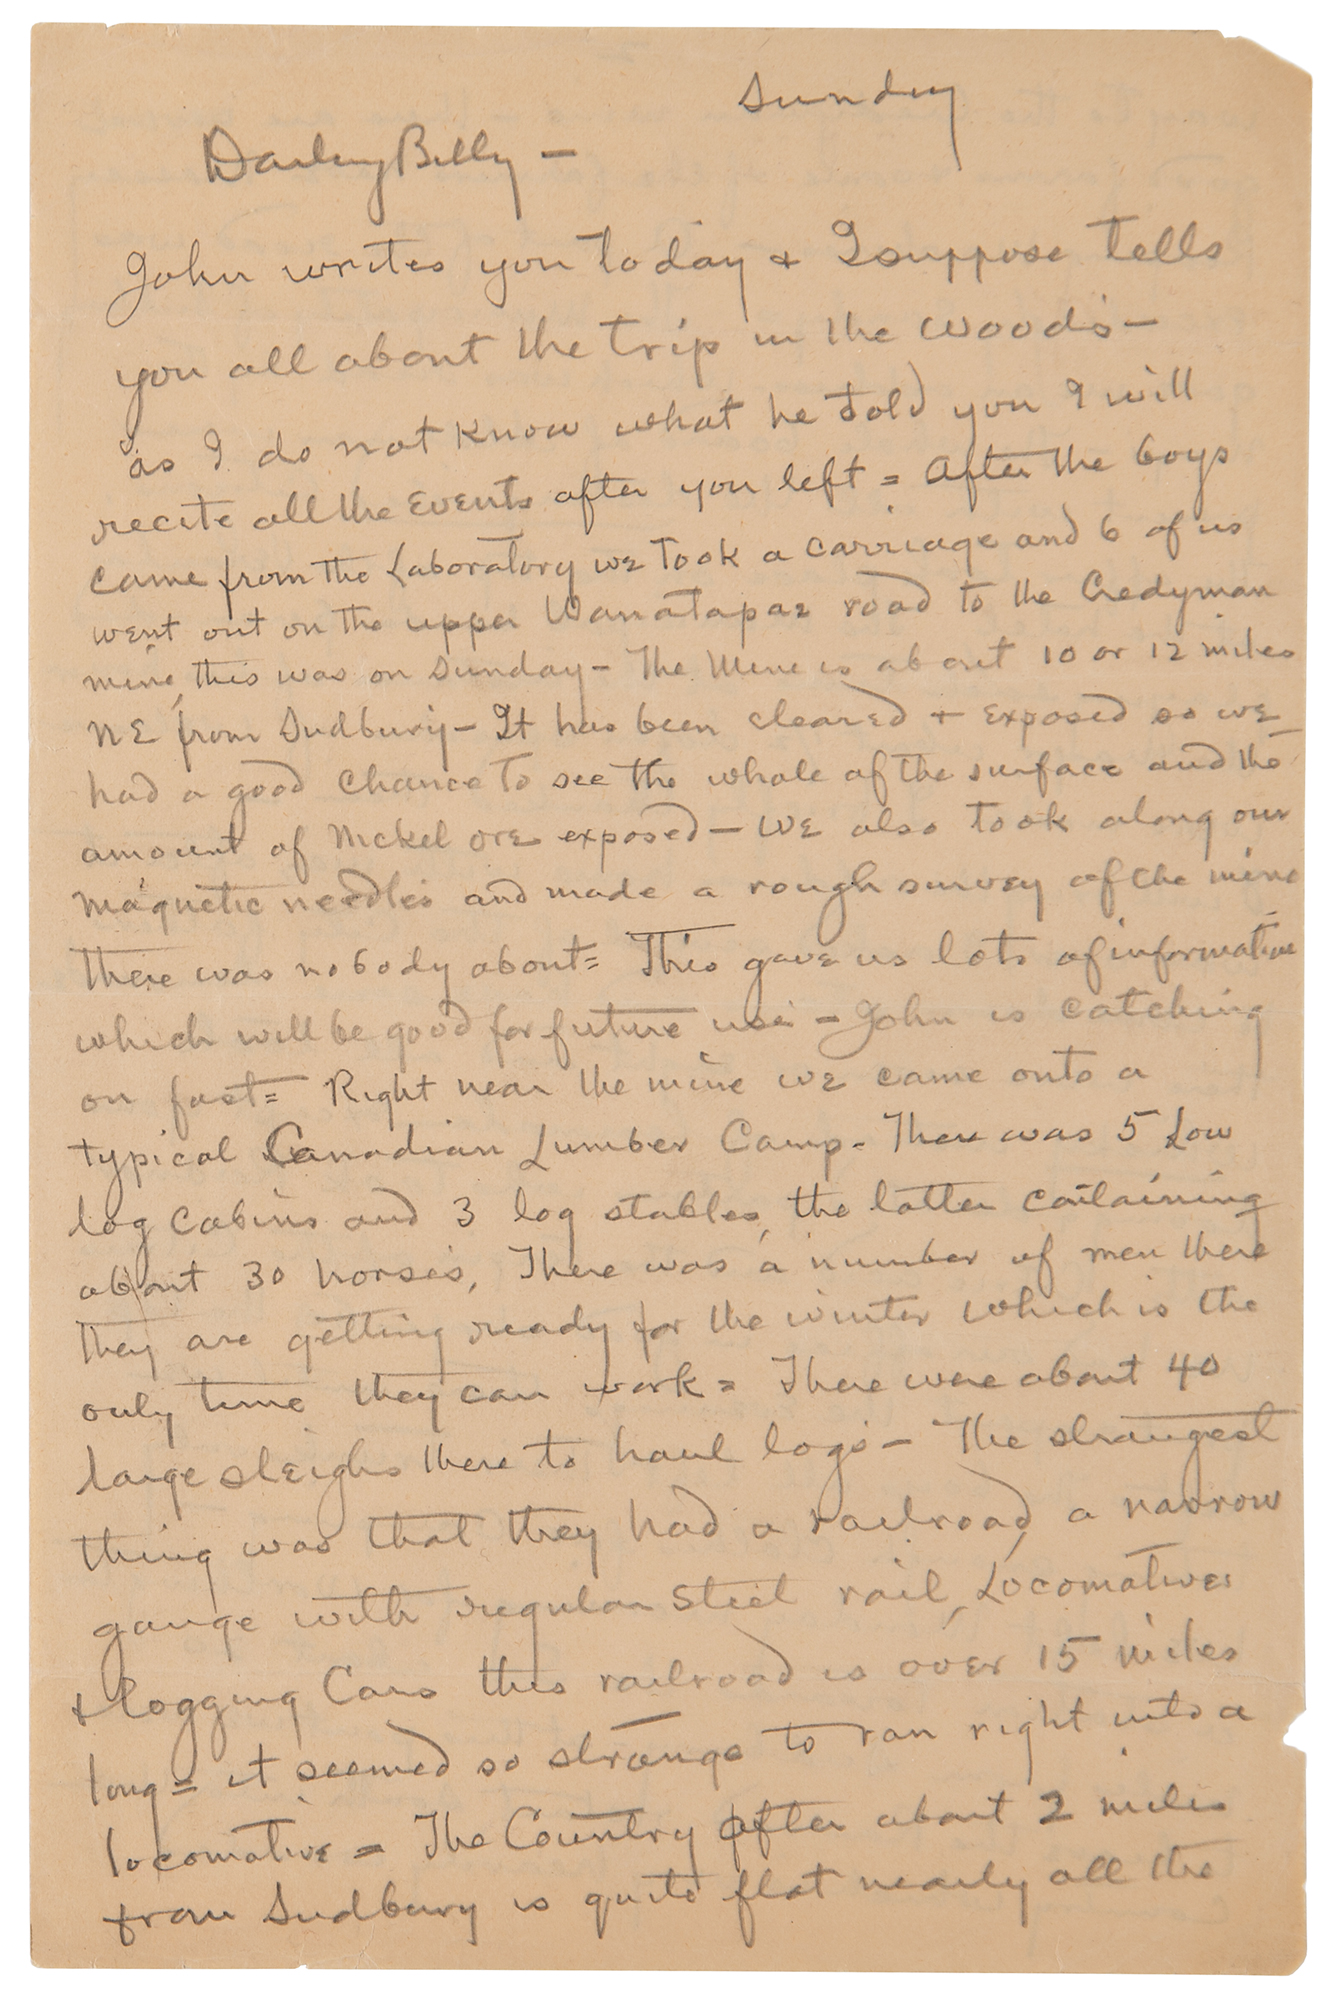 Sunday
Darling Billy —
John writes you today + I suppose tells
you all about the trip in the woods —
as I do not know what he told you I will
recite all the Events after you left = After the boys
came from the Laboratory we took a carriage and 6 of us
went out on the upper Wanatapae road to the
mine, this was on Sunday — The Mine is about 10 or 12 miles
NE from Sudbury — It has been cleared + exposed so we
had a good chance to see the whole of the surface and the
amount of Nickel ore exposed — We also took along our
magnetic needles and made a rough survey of the mine
there was nobody about = This gave us lots of information
which will be good for future use — John is catching
on fast = Right near the mine we came onto a
typical Canadian Lumber Camp - There was 5 Low
log cabins and 3 log stables, the latter containing
about 30 horses, There was a number of men there
they are getting ready for the winter which is the
only time they can work = There were about 40
large sleighs there to haul logs — The strangest
thing was that they had a railroad, a narrow
gauge with regular steel rail, Locomotives
+ logging Cars this railroad is over 15 miles
long = it seemed so strange to ran right into a
locomotive = The Country after about 2 miles
from Sudbury is quite flat nearly all the